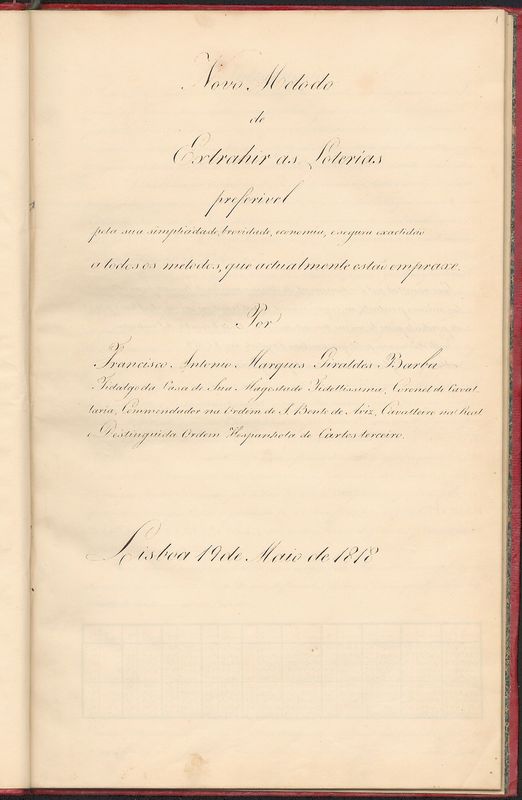 1
Novo Metodo
de
Extrahir as Loterias
preferivel
pela sua simplicidade, brevidade, economia, e segura exactidão
a todos os metodos, que actualmente estão em praxe.
Por
Francisco Antonio Marques Giraldes Barba
Fidalgo da Casa de Sua Magestade Fidellissima, Coronel de Caval
laria, Commendador na Ordem de S. Bento de Aviz, Cavalleiro na Real
Destinguida Ordem Hespanhola de Carlos terceiro.
Lisboa 19 de Maio de 1818